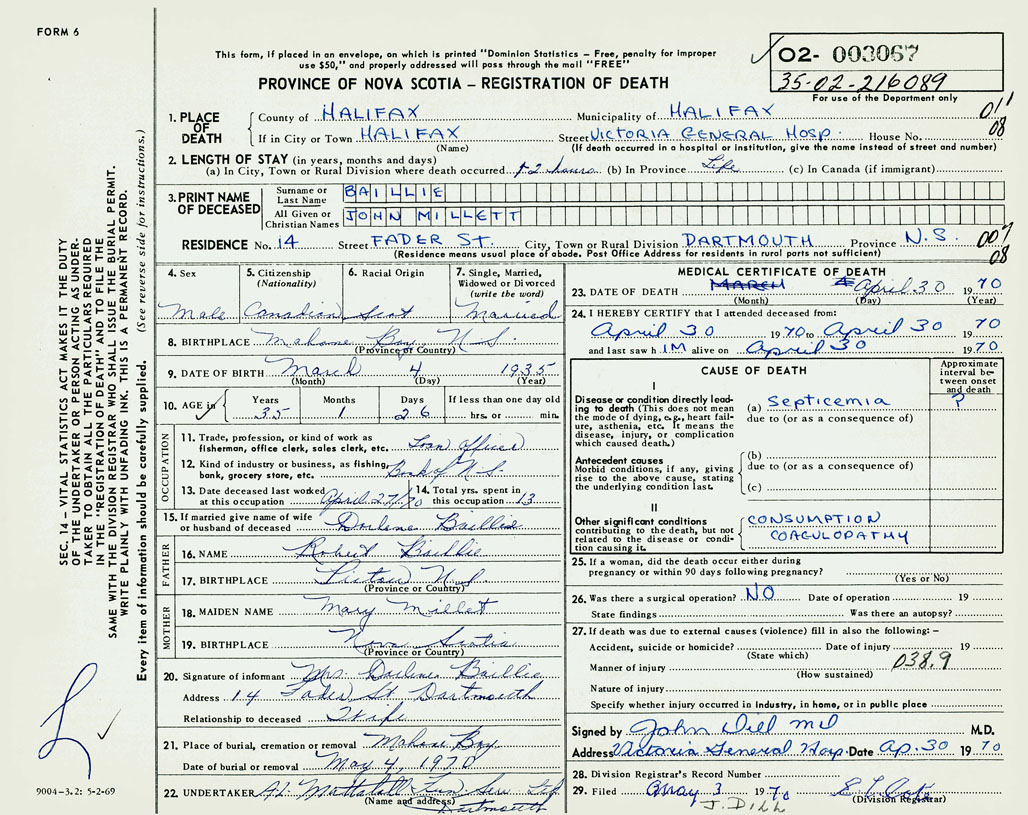 FORM 6
This form, if placed in an envelope, on which is printed "Dominion Statistics – Free, penalty for improper
use $50," and properly addressed will pass through the mail "FREE"
PROVINCE OF NOVA SCOTIA – REGISTRATION OF DEATH
O2- 003067
35-02-216089
For use of the Department only
1. PLACE OF DEATH
County of HALIFAX Municipality of HALIFAX 011
If in City or Town HALIFAX Street VICTORIA GENERAL HOSP. House No. 08
(Name) (If death occurred in a hospital or institution, give the name instead of street and number)
2. LENGTH OF STAY (in years, months and days)
(a) In City, Town or Rural Division where death occurred 12 hours (b) In Province Life (c) In Canada (if immigrant)
3. PRINT NAME OF DECEASED
Surname or Last Name BAILLIE
All Given or Christian Names JOHN MILLETT
RESIDENCE No. 14 Street FADER ST. City, Town or Rural Division DARTMOUTH Province N.S. 007
(Residence means usual place of abode. Post Office Address for residents in rural parts not sufficient) 08
4. Sex
Male
5. Citizenship
(Nationality)
Canadian
6. Racial Origin
Scot
7. Single, Married,
Widowed or Divorced
(write the word)
Married
8. BIRTHPLACE Mahone Bay N.S.
(Province or Country)
9. DATE OF BIRTH March 4 1935
(Month) (Day) (Year)
10. AGE in
Years Months Days If less than one day old
35 1 26 hrs. or min.
OCCUPATION
11. Trade, profession, or kind of work as
fisherman, office clerk, sales clerk, etc. Loan officer
12. Kind of industry or business, as fishing,
bank, grocery store, etc. Bank of N.S.
13. Date deceased last worked
at this occupation April 27/70
14. Total yrs. spent in
this occupation 13
15. If married give name of wife
or husband of deceased Darlene Baillie
FATHER
16. NAME Robert Baillie
17. BIRTHPLACE Pictou N.S.
(Province or Country)
MOTHER
18. MAIDEN NAME Mary Millet
19. BIRTHPLACE Nova Scotia
(Province or Country)
20. Signature of informant Mrs. Darlene Baillie
Address 14 Fader St Dartmouth
Relationship to deceased Wife
21. Place of burial, cremation or removal Mahone Bay
Date of burial or removal May 4, 1970
22. UNDERTAKER Mattatall Fun Ser
(Name and address) Dartmouth
MEDICAL CERTIFICATE OF DEATH
23. DATE OF DEATH MARCH April 30 1970
(Month) (Day) (Year)
24. I HEREBY CERTIFY that I attended deceased from:
April 30 1970 to April 30 1970
and last saw h IM alive on April 30 1970
CAUSE OF DEATH
Approximate
interval be-
tween onset
and death
I
Disease or condition directly lead-
ing to death (This does not mean
the mode of dying, e.g., heart fail-
ure, asthenia, etc. It means the
disease, injury, or complication
which caused death.)
(a) Septicemia ?
due to (or as a consequence of)
Antecedent causes
Morbid conditions, if any, giving
rise to the above cause, stating
the underlying condition last.
(b)
due to (or as a consequence of)
(c)
II
Other significant conditions
contributing to the death, but not
related to the disease or condi-
tion causing it.
CONSUMPTION
COAGULOPATHY
25. If a woman, did the death occur either during
pregnancy or within 90 days following pregnancy?
(Yes or No)
26. Was there a surgical operation? NO Date of operation 19
State findings Was there an autopsy?
27. If death was due to external causes (violence) fill in also the following: –
Accident, suicide or homicide? Date of injury 19
(State which) 038.9
Manner of injury
(How sustained)
Nature of injury
Specify whether injury occurred in industry, in home, or in public place
Signed by John Dill MD M.D.
Address Victoria General Hosp. Date Ap. 30 1970
28. Division Registrar's Record Number
29. Filed May 3 1970
J. DILL (Division Registrar)
SEC. 14 – VITAL STATISTICS ACT MAKES IT THE DUTY
OF THE UNDERTAKER OR PERSON ACTING AS UNDER-
TAKER TO OBTAIN ALL THE PARTICULARS REQUIRED
IN THE "REGISTRATION OF DEATH" AND TO FILE THE
SAME WITH THE DIVISION REGISTRAR WHO SHALL ISSUE THE BURIAL PERMIT.
WRITE PLAINLY WITH UNFADING INK. THIS IS A PERMANENT RECORD.
Every item of information should be carefully supplied. (See reverse side for instructions.)
9004-3.2: 5-2-69